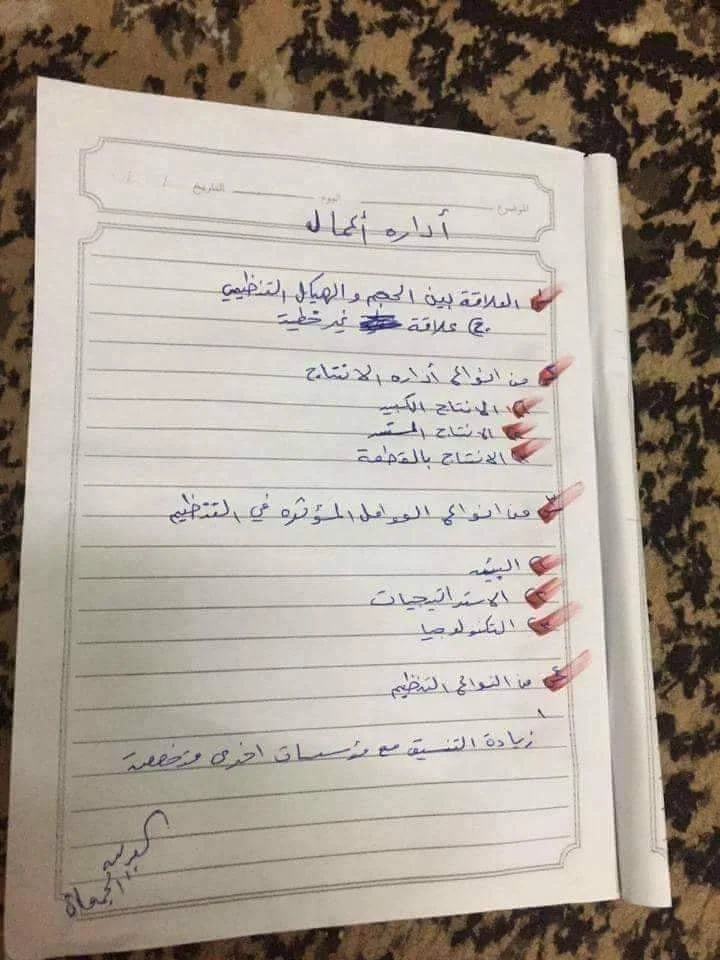 الموضوع اليوم التاريخ / /
أداره أعمال
١ العلاقة بين الحجم والهيكل التنظيمي
ج علاقة غير خطية
٢ من انواع أداره الانتاج
١ الانتاج الكبير
٢ الانتاج المستمر
٣ الانتاج بالقطعة
٣ من انواع العوامل المؤثره في التنظيم
١ البيئه
٢ الاستراتيجيات
٣ التكنولوجيا
٤ من انواع التنظيم
١
زيادة التنسيق مع مؤسسات اخرى متخصصة